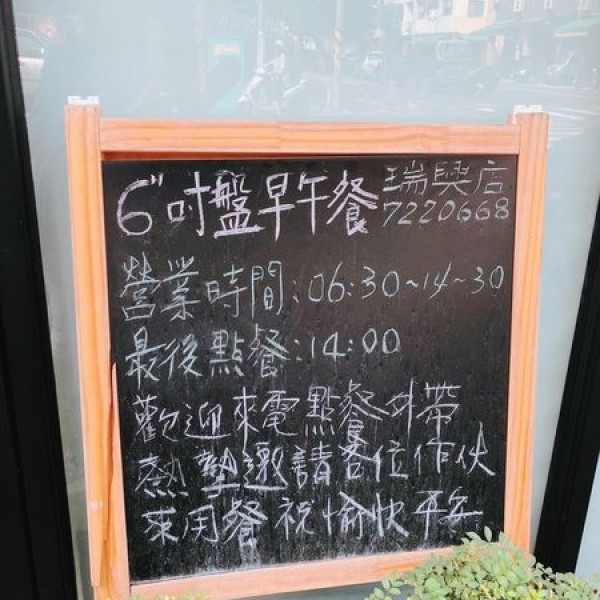 6"吋盤早午餐 瑞興店
7220668
營業時間:06:30~14~30
最後點餐:14:00
歡迎來電點餐外帶
熱摯邀請各位作伙
來用餐祝愉快平安